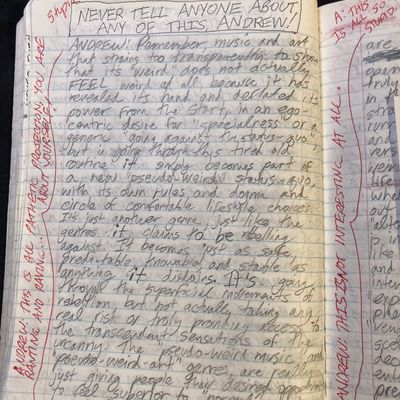 STUPID
NEVER TELL ANYONE ABOUT
ANY OF THIS, ANDREW!
ANDREW! Remember, music and art
that strains too transparently to show
that it's "weird" does not actually
FEEL weird at all, because it has
revealed its hand and declared its
power from the start, in an ego
centric desire for "specialness" or a
generic "going against the status-quo,"
but by going through this tired old
routine it simply becomes part of
a new pseudo-weird status-quo,
with its own rules and dogma and
circle of comfortable lifestyle choices.
It's just another genre, just like the
genres it claims to be rebelling
against. It becomes just as safe,
predictable, knowable and stable as
anything it disdains. It's going
through the superficial movements of
rebellion but not actually taking any
real risk or truly providing access to
the transcendent sensations of the
uncanny. The "pseudo-weird music" and
"pseudo-weird-art" genres are really
just giving people they desired opportunity
to feel superior to "normal
ANDREW: THIS IS ALL PATHETIC PROJECTION. YOU ARE
RANTING AND RAVING... ABOUT YOURSELF.
ANDREW: THIS IS NOT INTERESTING AT ALL.
A: THIS
IS ALL SO
STUPID
are
open
truly
in
stra
runn
and
vers
weird
life
whe
out
alte
is
like
and
inter
exp
phe
ven
sce
deci
ente
pre